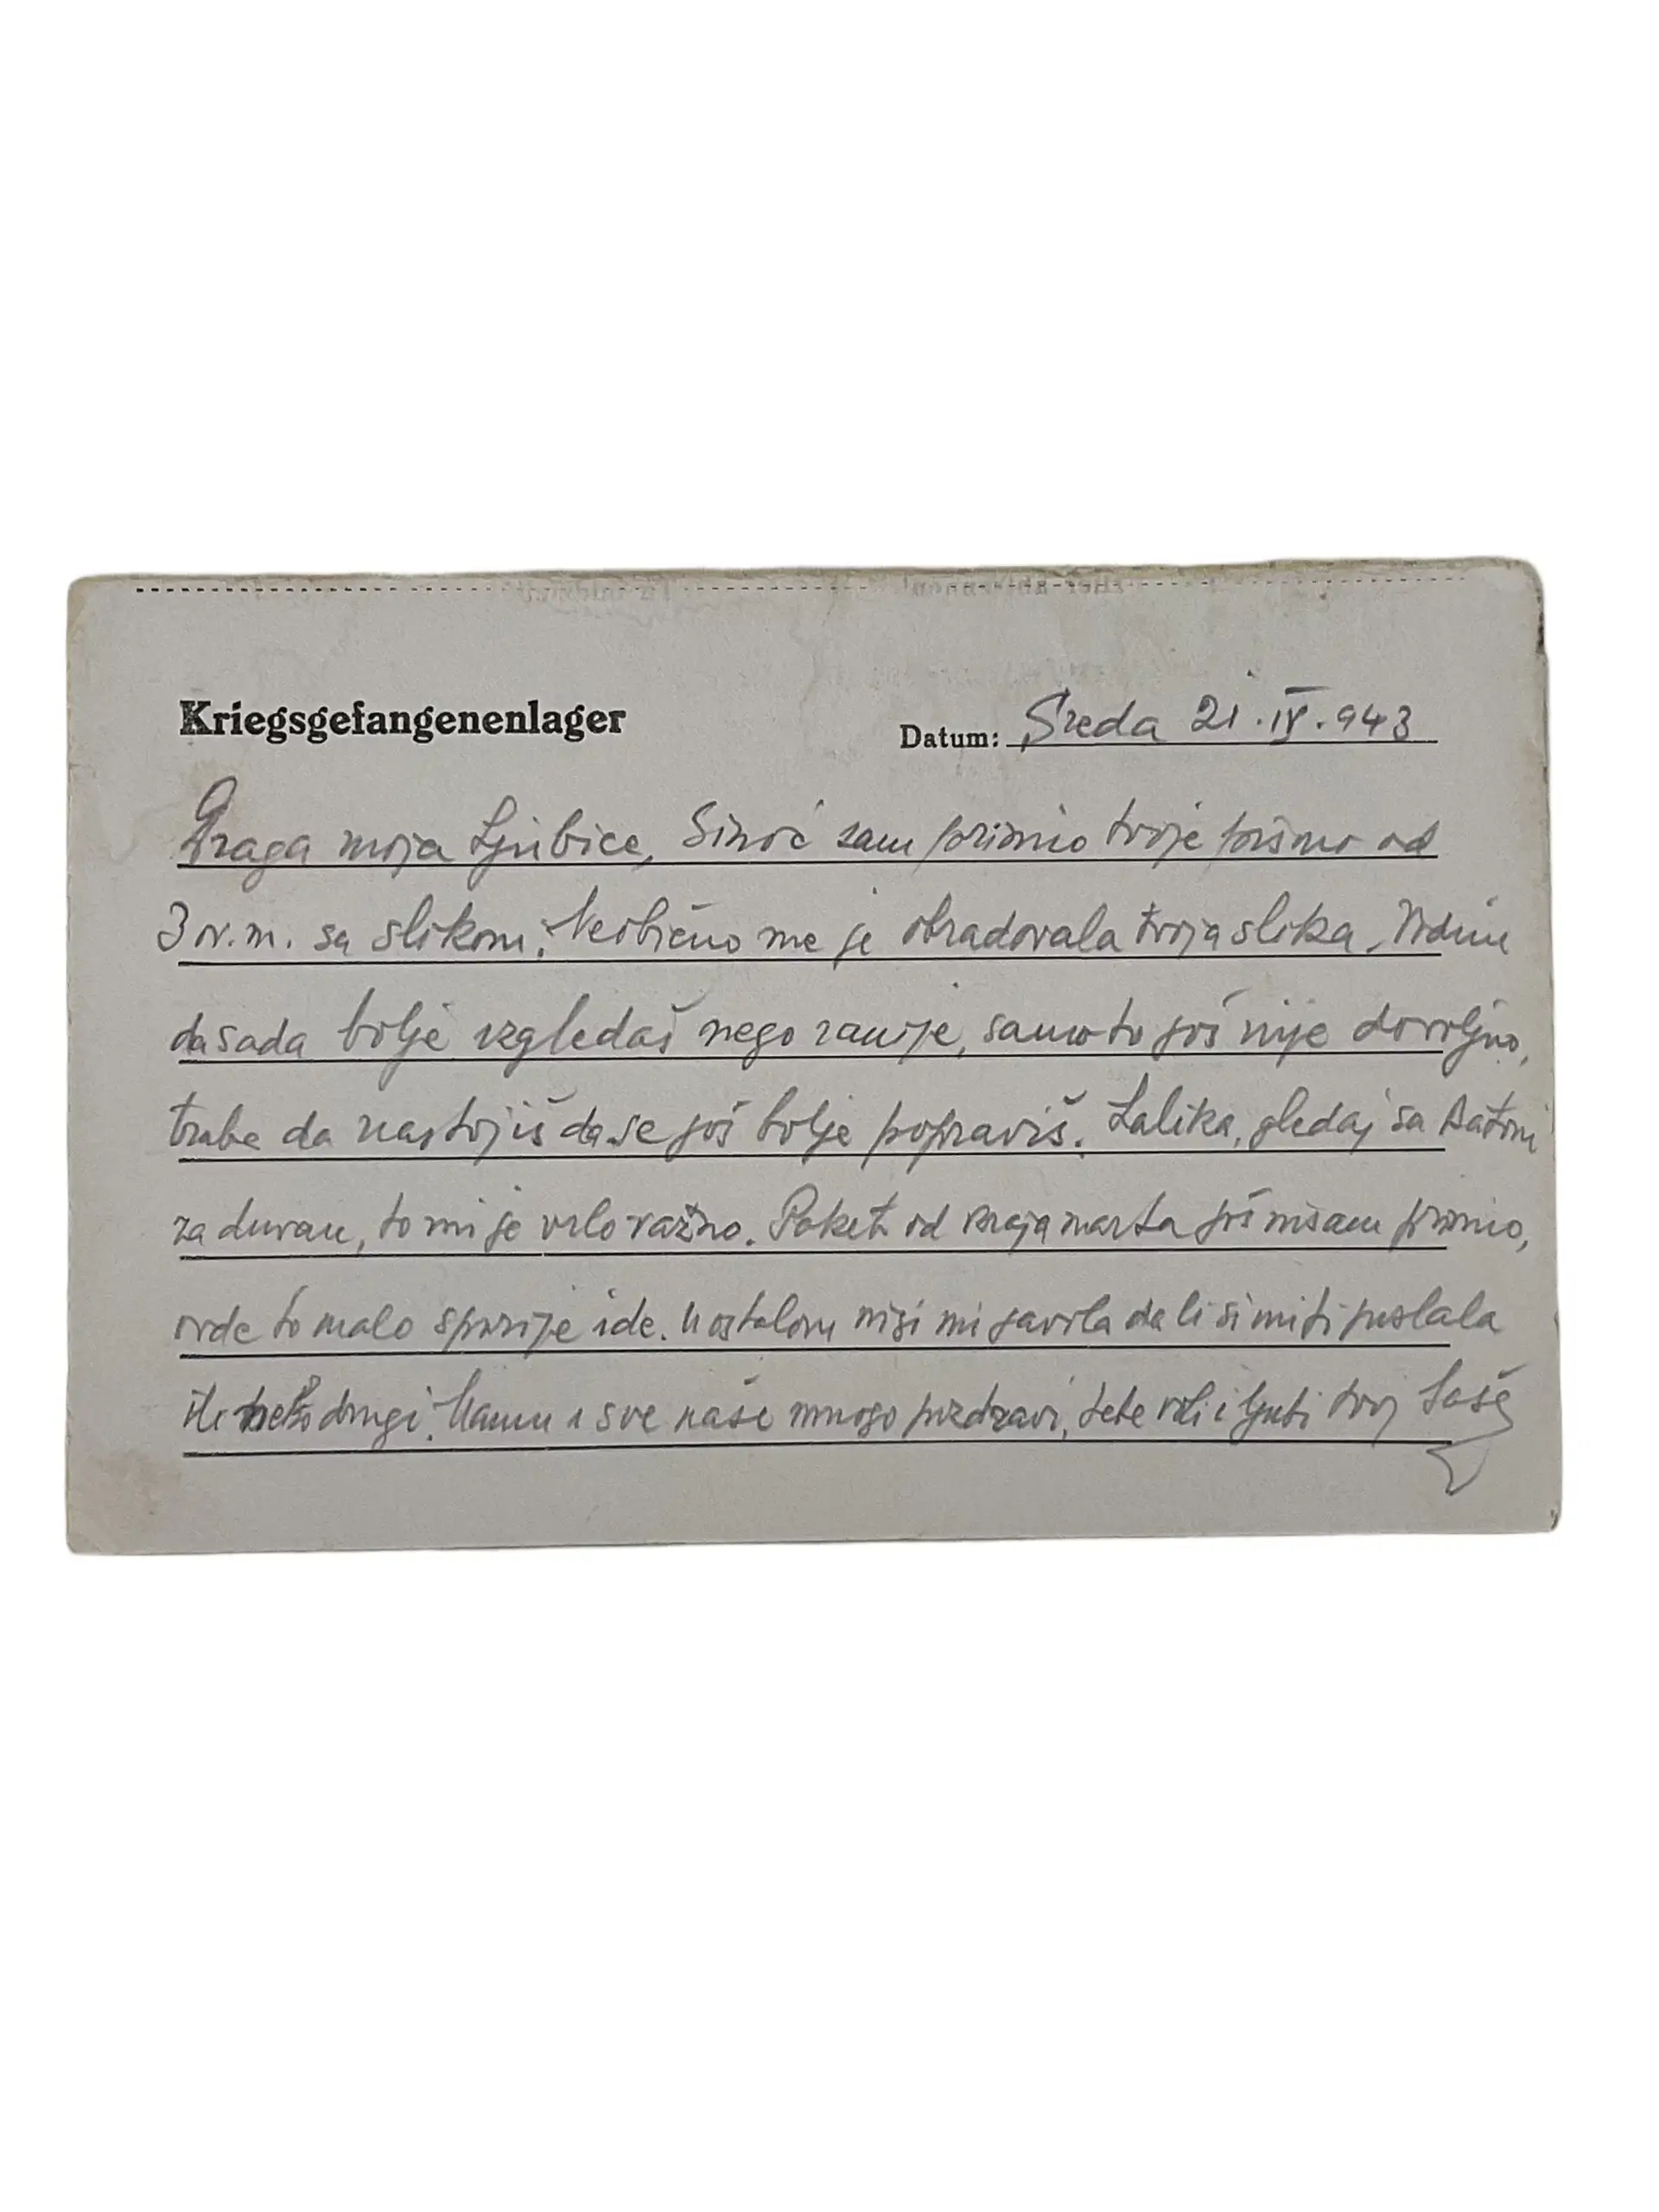 Kriegsgefangenenlager
Datum: Sreda 21.IV.943
Draga moja Ljubice, Sinoć sam primio tvoje pismo od
3 ov.m. sa slikom. Neobično me je obradovala tvoja slika. Vidim
da sada bolje izgledaš nego ranije, samo to još nije dovoljno,
treba da nastojiš da se još bolje popraviš. Lalika, gledaj sa Batom
za duvan, to mi je vrlo važno. Paket od kraja marta još nisam primio,
ovde to malo sporije ide. Uostalom nisi mi javila da li si mi ti poslala
ili neko drugi. Mamu i sve naše mnogo pozdravi, tebe voli i ljubi tvoj